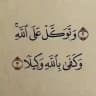 وَتَوَكَّلْ عَلَى اللَّهِ ۚ
وَكَفَىٰ بِاللَّهِ وَكِيلًا